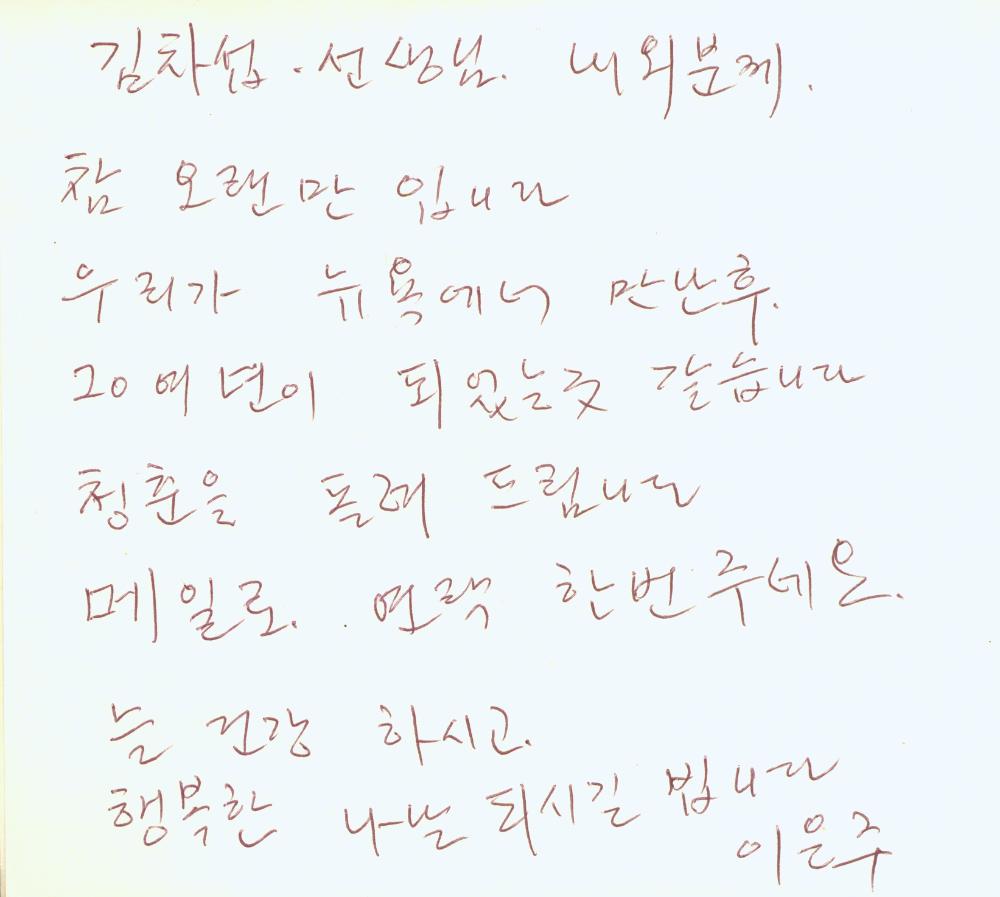 김차섭. 선생님. 내외분께.
참 오랜만 입니다
우리가 뉴욕에서 만난후.
20여년이 되었는굿 같습니다
청춘을 돌려 드립니다
메일로. 연락 한번주세요.
늘 건강 하시고.
행복한 나날 되시길 빕니다
이은주